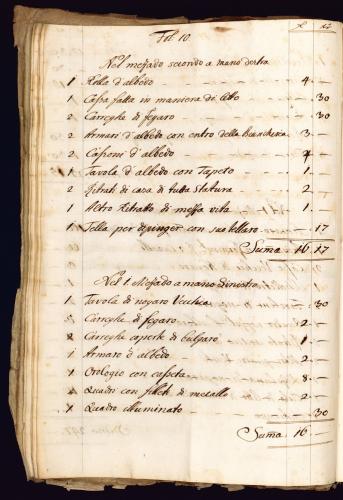 Fol 10
Nel mesado secondo a mano destra
1 Rolla d'albedo 4 –
1 Cassa fatta in maniera di letto – 30
2 Carreghe di fegaro – 30
2 Armari d'albedo con entro della biancheria 3 –
2 Cassoni d'albedo 4 –
1 Tavola d'albedo con Tapeto 1 –
2 Ritrati di casa di tutta statura 2 –
1 Altro Ritratto di messa vita 1 –
1 Tella per depinger con suo tellaro – 17
Suma 16 17
Nel 1 Mesado a mano sinistra
1 Tavola di nogaro Vecchia – 30
5 Carreghe di fegaro 2 –
8 Carreghe coperte di bulgaro 1 –
1 Armaro d'albedo 2 –
1 Orologio con cassetta 8 –
4 Quadri con di metallo 2 –
1 Quadro illuminato – 30
Suma 16 –